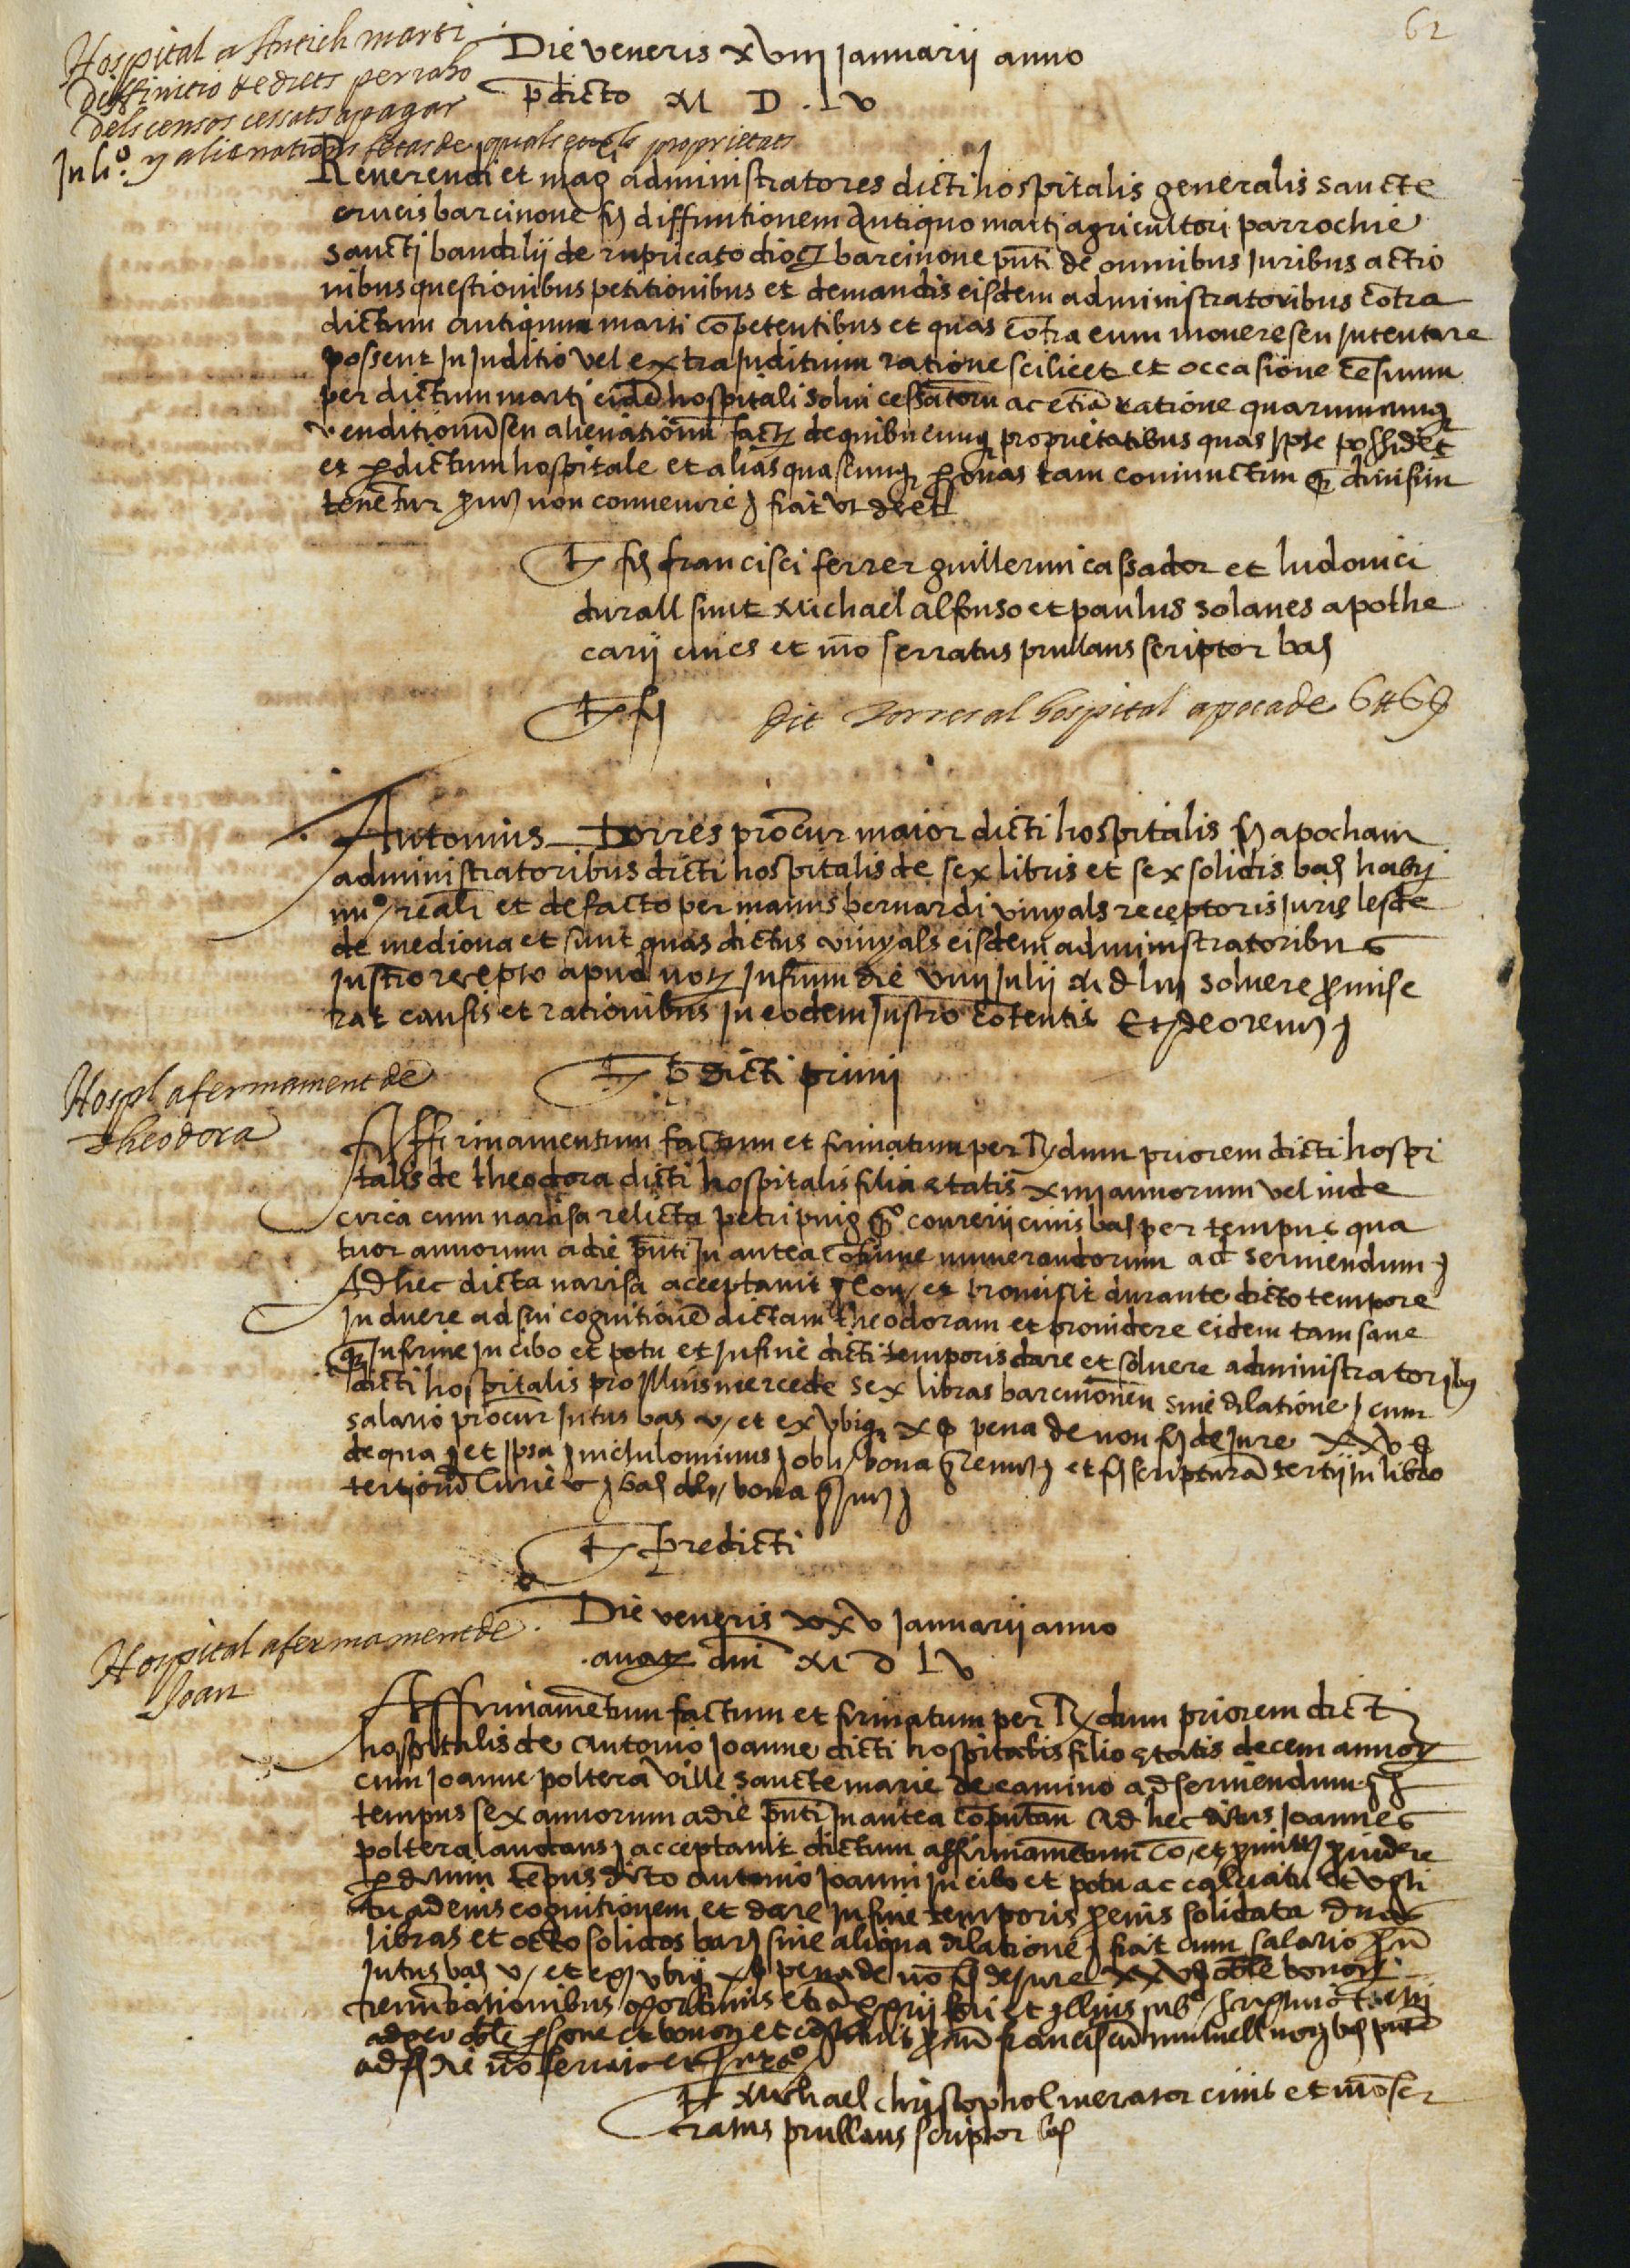 62
Hospital a Antich marti
deffinicio de drets per raho
dels censos cessats a pagar
In li.º y alienations fetas de quals proprietats
Die veneris xviii Januarii anno
p̄dicto M D . L v
Reverendi et mag administratores dicti hospitalis generalis sancte
crucis barcinone diffinitionem Antiquo marti agricultori parrochie
sancti baudilii de rupricato dioc barcinone pn̄ti de omnibus Juribus actio
nibus questionibus petitionibus et demandis eisdem administratoribus cōtra
dictum antiquum marti cōpetentibus et quas cōtra eum movere seu Intentare
possent In Juditio vel extra Juditium ratione scilicet et occasione cēsuum
per dictum marti eidē hospitali solvi cessatorū ac etiā ratione quarumcunq
venditionū seu alienationū fact de quibuscunq proprietatibus quas Ipse possidet
et p dictum hospitale et alias quascunq p̄sonas tam coniunctim q̄ divisim
tenētur non convenire fiat ut decet
T francisci ferrer guillermi cassador et ludovici
durall sunt Michael alfonso et paulus solanes apothe
carii cives et mō serratus prullans scriptor bar
T
dit Torres al hospital apoca de 6 tt 6 s
Antonius Torres procur maior dicti hospitalis apocham
administratoribus dicti hospitalis de sex libris et sex solidis bar
realr et de facto per manus bernardi vinyals receptoris Juris lesde
de mediona et sunt quas dictus vinyals eisdem administratoribus
Inst̄ro recepto apud not Infrm die viiij Julii M d liiij solvere p̄mise
rat causis et rationibus In eodem Inst̄ro cōtentis Et Ideo renun
T p̄dicti primi
Hospl afermament de
theodora
Affirmamentum factum et firmatum per Rdum priorem dicti hospi
talis de theodora dicti hospitalis filia etatis xiiij annorum vel inde
circa cum narcisa relicta petri puig q̄º correrii civis bar per tempus qua
tuor annorum a die pn̄ti In antea cōtinue numerandorum ad serviendum
Ad hec dicta narcisa acceptavit con et promisit durante dicto tempore
Induere ad sui cognitionē dictam theodoram et providere eidem tam sane
q̄ Infirme In cibo et potu et In fine dicti temporis dare et solvere administratoribus
dicti hospitalis pro Illius mercede sex libras barcinonen sine dilatione cum
salario procur Intus bar v et extra ubiq x pena de non de Jure xxv
de qua et Ipsa nichilominus obli bona renun et scripturā tertii In libro
tertiorū Curie bar obli bona
T predicti
Hospital afermament de
Joan
Die veneris xxv Januarii anno
a nat dni M D L v
Affirmamētum factum et firmatum per Rdum priorem dicti
hospitalis de antonio Joanne dicti hospitalis filio etatis decem annor
cum Joanne poltera ville sancte marie de camino ad serviendum
tempus sex annorum a die pn̄ti In antea cōputan Ad hec dictus Joannes
poltera laudans acceptavit dictum affirmamētum cō et p̄mittit p̄videre
p dictum tēpus dicto antonio Joanni In cibo et potu ac calciatu et vesti
tu ad eius cognitionem et dare In fine temporis p eius solidata duas
libras et octo solidos bar sine aliqua dilatione fiat cum salario
Intus bar v et extra ubiq x pena de nō de Jure xxv oble bonor
renūtiationibus oportunis etiā proprii fori et
oble p̄sone et bonor et franciscū
T Michael christophol mercator civis et mōser
ratus prullans scriptor bar